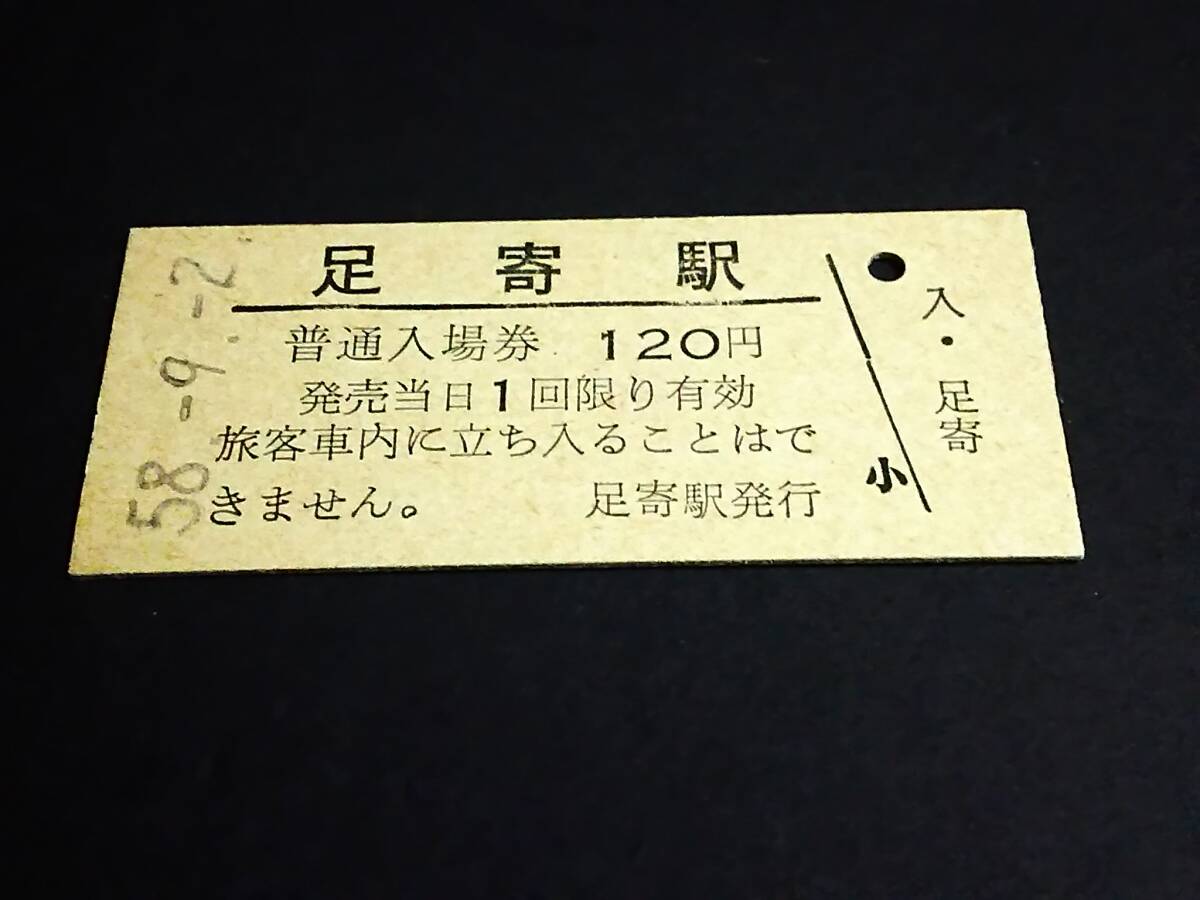 足寄駅
普通入場券 120円
発売当日1回限り有効
旅客車内に立ち入ることはで
きません。 足寄駅発行
58.-9.-2
小
入・足寄